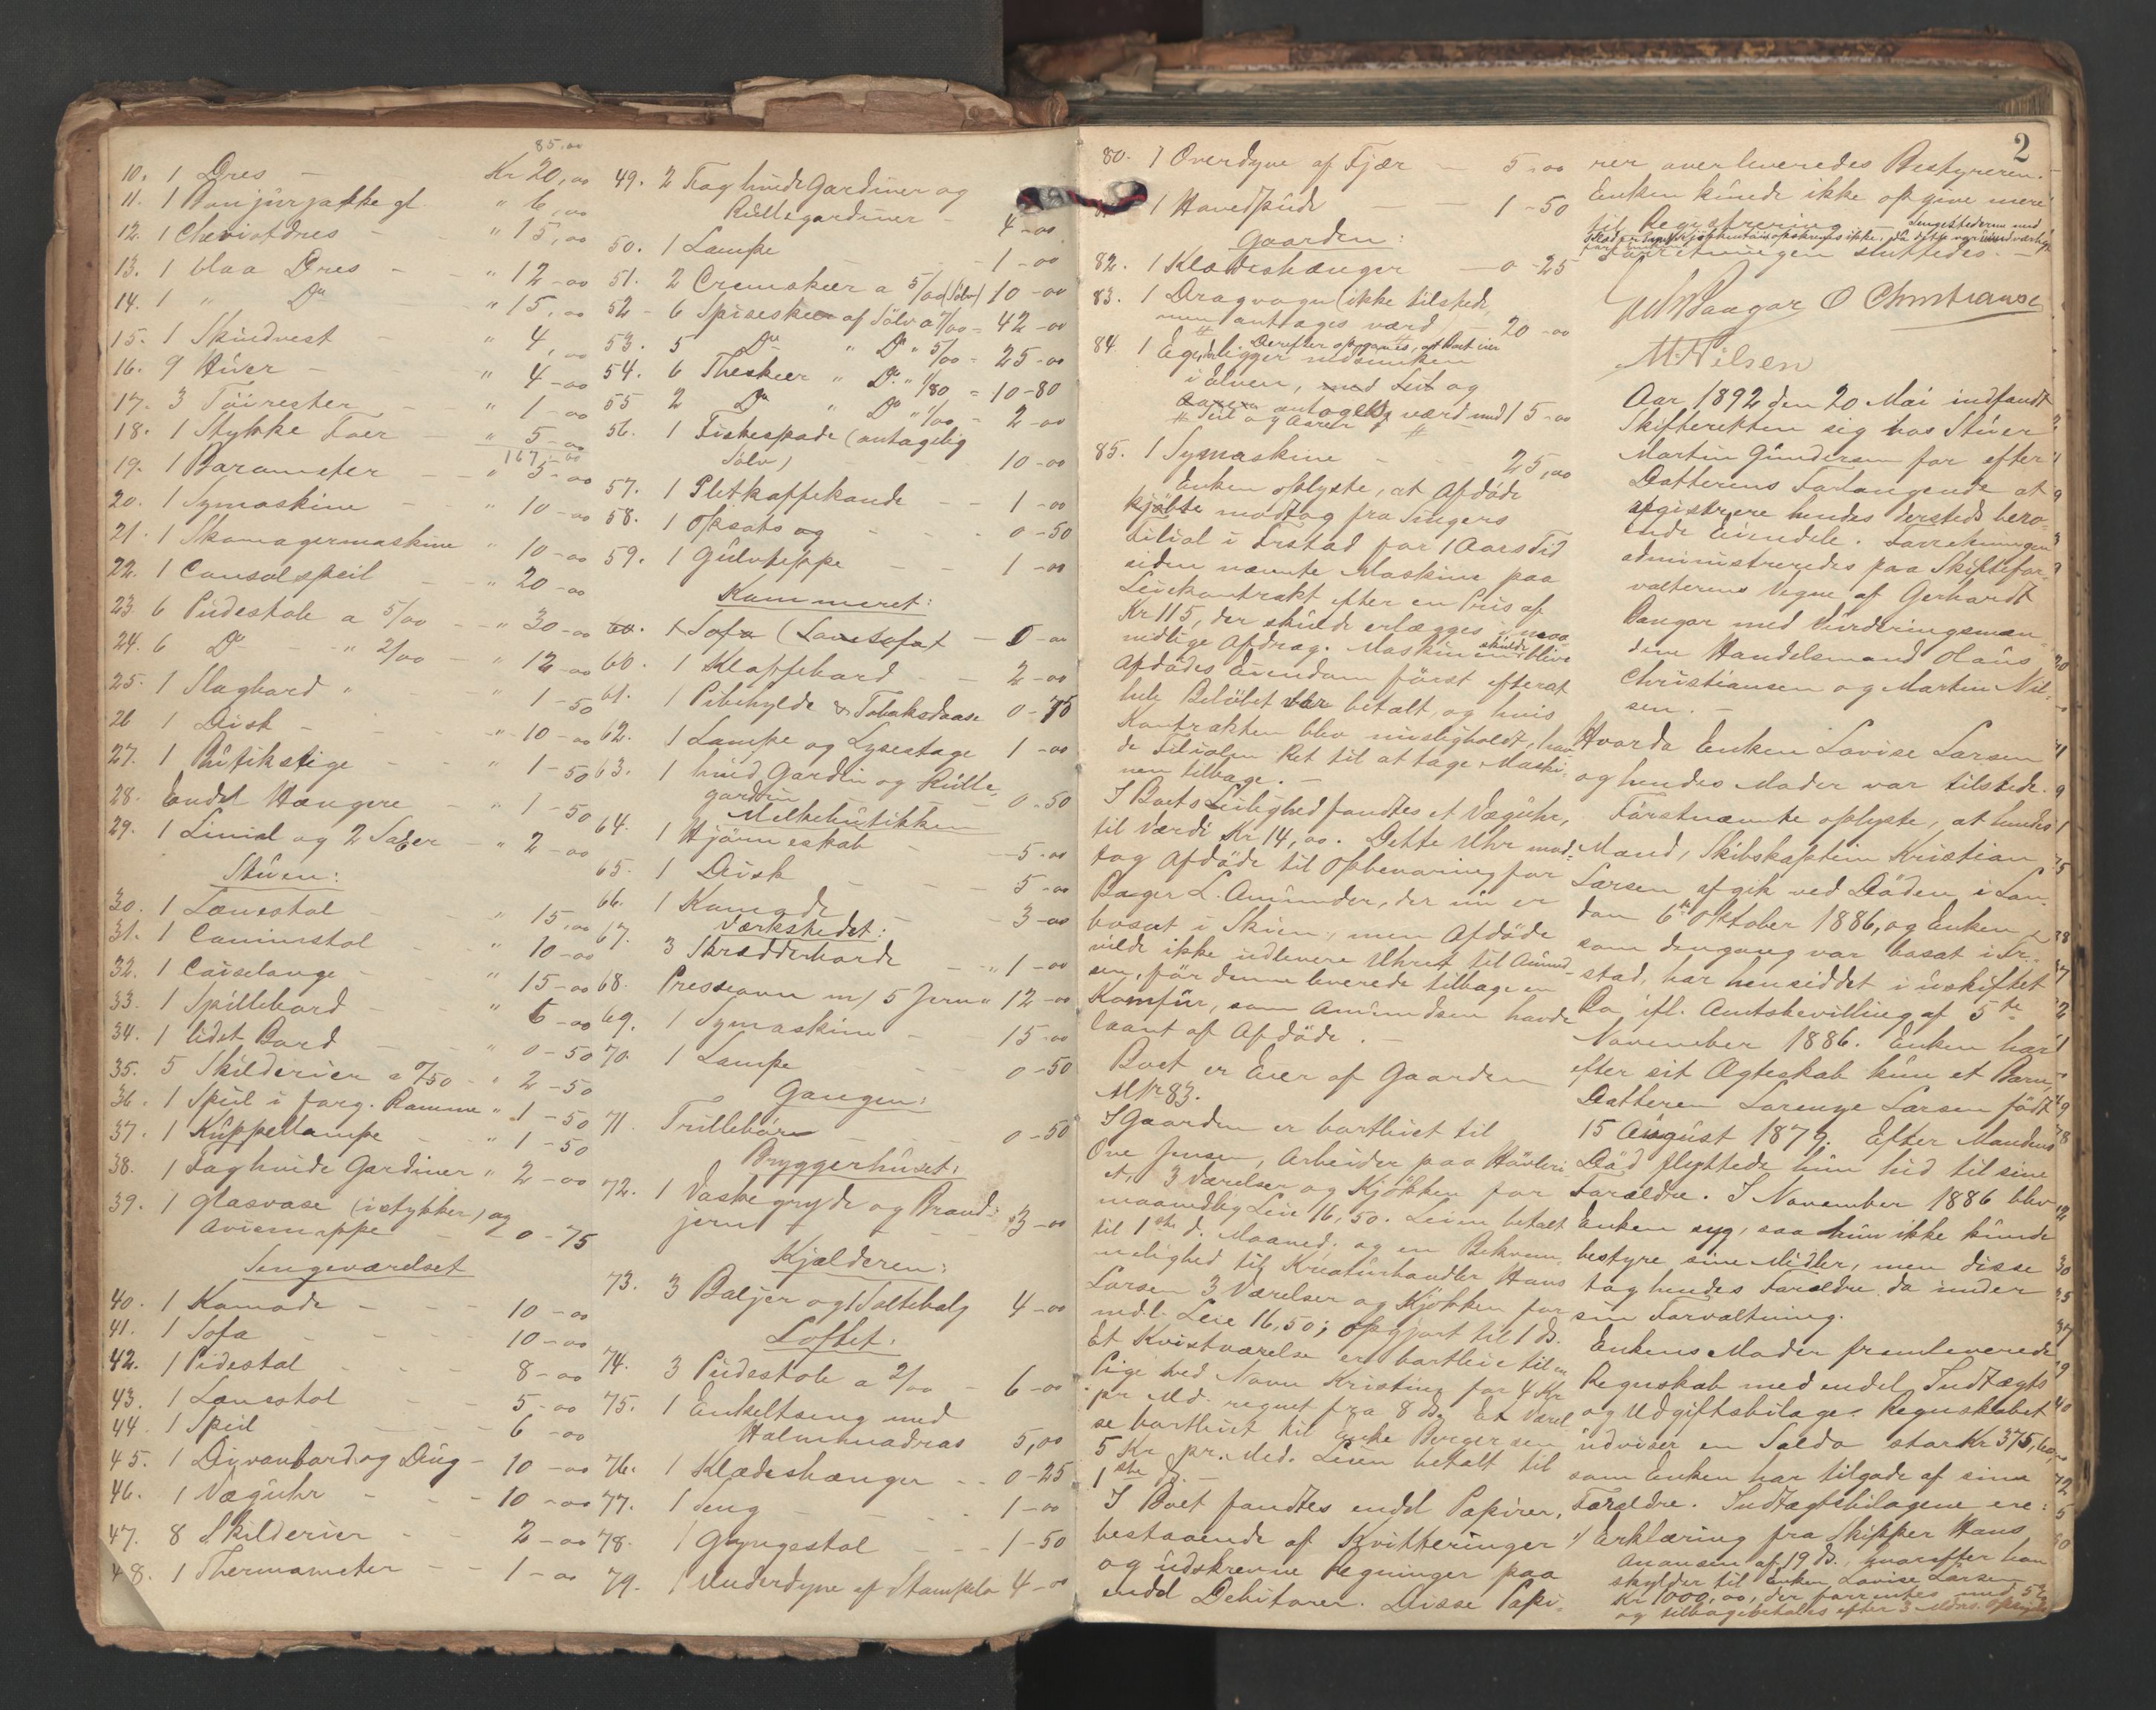 85,00
10. 1 Dres - Kr 20,00
11. 1 Bonjurjakke gl. " 6,00
12. 1 Cheviotdres - " 15,00
13. 1 blaa Dres - - " 12-00
14. 1 " Do " 15,00
15. 1 Skindvest - " 4,00
16. 9 Huer - " 4-00
17. 3 Töirester - " 1-00
18. 1 Stykke Foer - " 5-00
167,00
19. 1 Barometer - - " 5-00
20. 1 Symaskine - - " 10-00
21. 1 Skomagermaskine " 10-00
22. 1 Consolspeil - - " 20-00
23. 6 Pudestole a 5/00 - - " 30-00
24. 6 Do - - " 2/00 - " 12-00
25. 1 Slagbord " - " 1-50
26 1 Disk - - - " 10-00
27. 1 Butikstige - - " 1-50
28. Endel Hængere - " 1-50
29. 1 Linial og 2 Saxer - " 2-00
Stuen:
30. 1 Lænestol - " 15,00
31. 1 Caminstol - " 10-00
32. 1 Caiselange - - " 15-00
33. 1 Spillebord - - " 6-00
34. 1 lidet Bord - - " 0-50
35. 5 Skilderier a 0/50 - " 2-50
36. 1 Speil i forg. Ramme " 1-50
37. 1 Kuppellampe - " 1-50
38. 1 Fag hvide Gardiner " 2-00
39. 1 Glasvase (i stykker) og
Avismappe - 0-75
Sengeværelset
40. 1 Komode - - 10-00
41. 1 Sofa - - - 10-00
42. 1 Pidestal - - - 8-00
43. 1 Lænestol - - - 5-00
44. 1 Speil - - - 6-00
45. 1 Divanbord og Dug - 10-00
46. 1 Væguhr - - - 10-00
47. 8 Skilderier - - 2-00
48. 1 Thermometer - - 1-00
49. 2 Fag hvide Gardiner og
Rullegardiner - 4-00
50. 1 Lampe - - 1-00
51. 2 Cremskeer a 5/00 (Sölv) 10-00
52 - 6 Spiseskeer af Sölv a 7/00 = 42-00
53. 5 Do " Do " 5/00 = 25-00
54. 6 Theskeer " Do " 1/80 = 10-80
55 2 Do " Do " 1/00 = 2-00
56. 1 Fiskespade (antagelig
Sölv) - - 10-00
57. 1 Pletkaffekande - - 1-00
58. 1 Opsats og - - - 0-50
59. 1 Gulvteppe - - 1-00
Kammeret:
60. 1 Sofa (Lovesofa) - 5-00
60. 1 Klaffebord - - 2-00
61. 1 Pibehylde & Tobaksdaase 0-75
62. 1 Lampe og Lysestage 1-00
63. 1 hvid Gardin og Rulle-
gardin - 0-50
Melkebutikken
64. 1 Hjörneskab - - 5-00
65. 1 Disk - - - 5-00
66. 1 Komode - - 3-00
Værkstedet:
67. 3 Skrædderborde - - " 1-00
68. Presseovn m/ 5 Jern " 12-00
69. 1 Symaskine - 15-00
70. 1 Lampe - - 0-50
Gangen:
71. Trillebör - - - 0-50
Bryggerhuset:
72. 1 Vaskegryde og Brand-
jern - - - 3-00
Kjælderen:
73. 3 Baljer og 1 Saltebalj 4-00
Loftet:
74. 3 Pudestole a 2/00 - 6-00
75. 1 Enkeltseng med
Halmmadras 5,00
76. 1 Klædeshænger - - 0-25
77. 1 Seng - - - 1-00
78. 1 Gyngestol - - - 1-50
79. 1 Underdyne af Stampelo 4-00
80. 1 Overdyne af Fjær - 5,00
1 Hovedpude - - 1-50
Gaarden:
82. 1 Klædeshænger - 0-25
83. 1 Dragvogn (ikke tilstede,
men antages værd) - 20-00
Derefter opgaves, at Boet eier
84. 1 Ege, der ligger nedsunken
i Elven, med Seil og
antoges værd med 15-00
# Seil og Aarer #
85. 1 Symaskine - - - 25,00
Enken oplyste, at Afdöde
kjöbte modtog fra Singers
Filial i Frstad for 1 Aars Tid
siden nævnte Maskine paa
Leiekontrakt efter en Pris af
Kr 115, der skulde erlægges i maa-
nedlige Afdrag. Maskinen skulde blive
Afdödes Eiendom först efterat
hele Belöbet var betalt, og hvis
Kontrakten blev misligholdt, hav-
de Filialen Ret til at tage Maski-
nen tilbage. -
I Boets Leilighed fandtes et Væguhr,
til Værdi Kr. 14,00. Dette Uhr mod-
tog Afdöde til Opbevaring for
Bager L. Amundsen, der nu er
bosat i Skien, men Afdöde
vilde ikke udlevere Uhret til Amund-
sen, för denne leverede tilbage en
Komfur, som Amundsen havde
laant af Afdöde. -
Boet er Eier af Gaarden
M Nr 83.
I Gaarden er bortleiet til
Ove Jensen, Arbeider paa Hövleri-
et, 3 Værelser og Kjökken for
maanedlig Leie 16,50. Leien betalt
til 1ste d. Maaned, og en Bekvem-
melighed til Kreaturhandler Hans
Larsen 3 Værelser og Kjökken for
mdl. Leie 16,50; opgjort til 1 ds.
Et Kvistværelse er bortleie til en
Pige ved Navn Kristine for 4 Kr
pr Md. regnet fra 8 ds. Et Værel-
se bortleiet til Enke Borgersen
5 Kr pr. Md. Leien betalt til
1ste ds. -
I Boet fandtes endel Papirer,
bestaaende af Kvitteringer
og udskrevne Regninger paa
endel Debitorer. Disse Papi-
2
rer overleveredes Bestyreren. -
Enken kunde ikke opgive mere
til Registrering - Sengestederne med
Forretningen sluttedes. -
GM Paager O Christianse
M. Nilsen
Aar 1892 den 20 Mai indfandt
Skifteretten sig hos Stuer
Martin Gundersen for efter
Datterens Forlangende at
registrere hendes dersteds bero-
ende Eiendele. Forretningen
administreredes paa Skiftefor-
valterens Vegne af Gerhardt
Paager med Vurderingsmæn-
dene Handelsmand Olaus
Christiansen og Martin Nil-
sen. -
Hvorda Enken Lovise Larsen
og hendes Moder var tilstede.
Förstnævnte oplyste, at hendes
Mand, Skibskaptein Kristian
Larsen afgik ved Döden i Lon-
don 6te Oktober 1886, og Enken
som dengang var bosat i Fr.-
stad, har hensiddet i uskiftet
Bo, ifl. Amtsbevilling af 5te
November 1886. Enken har
efter sit Ægteskab kun et Barn,
Datteren Lorenze Larsen född
15 August 1879. Efter Mandens
Död flyttede hun hid til sine
Forældre. I November 1886 blev
Enken syg, saa hun ikke kunde
bestyre sine Midler, men disse
tog hendes Forældre da under
sin Forvaltning.
Enkens Moder fremleverede
Regnskab med endel Indtægts
og Udgiftsbilage. Regnskabet
udviser en Saldo stor Kr 375,60,
som Enken har tilgode af sine
Forældre. Indtægtsbilagene ere:
1/ Erklæring fra Skipper Hans
Anonsen af 19 ds., hvorefter han
skylder til Enken Lovise Larsen
Kr 1000,00, der forrentes med 5%
og tilbagebetales efter 3 Mdrs. Opsigelse